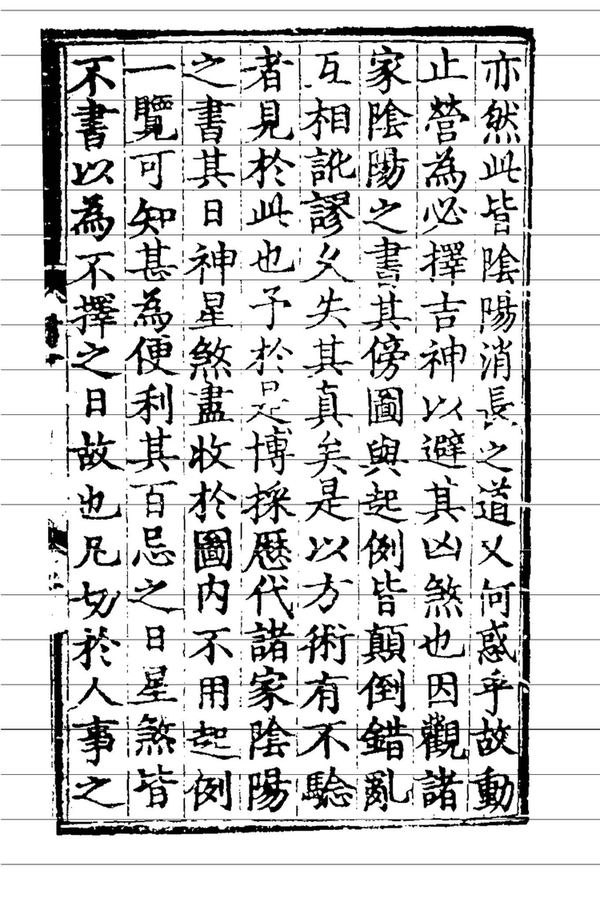 亦然此皆陰陽消長之道又何惑乎故動
止營為必擇吉神以避其凶煞也因觀諸
家陰陽之書其傍圖與起例皆顛倒錯亂
互相訛謬乆失其真矣是以方術有不驗
者見於此也予於是博採歷代諸家陰陽
之書其日神星煞盡收於圖内不用起例
一覽可知甚為便利其百忌之日星煞皆
不書以為不擇之日故也凡切於人事之